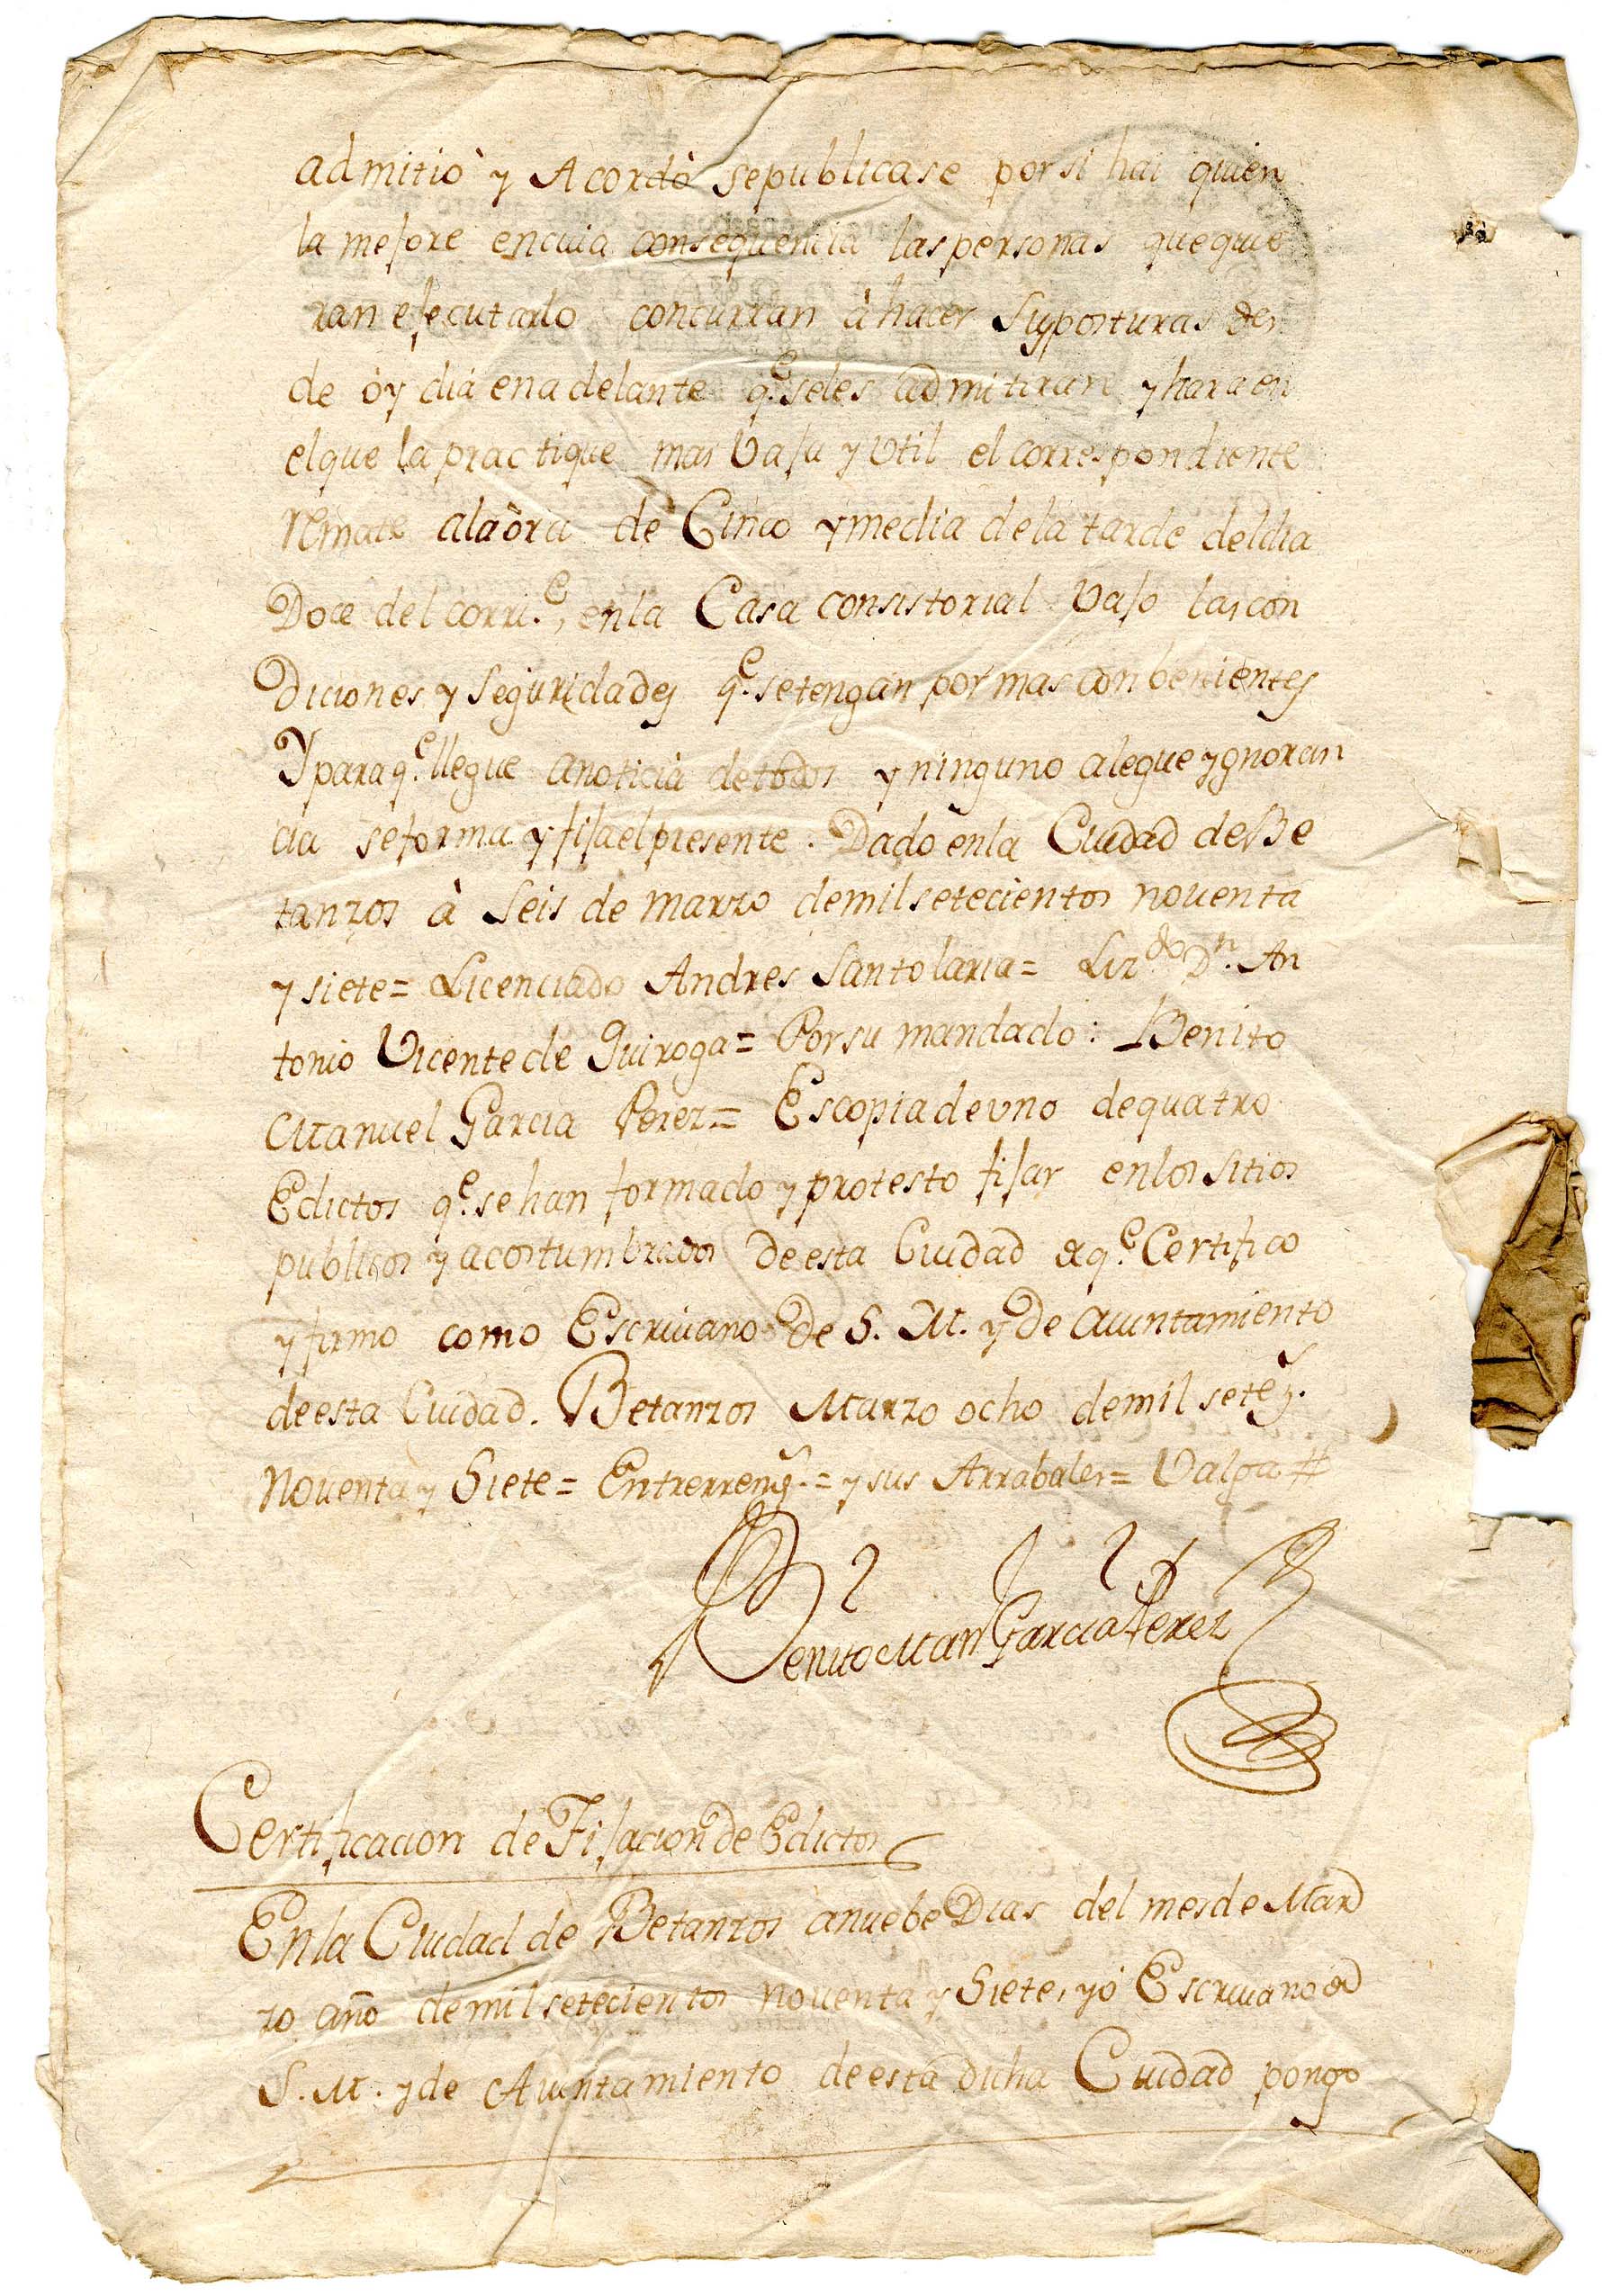 admitiò y Acordò sepublicase por si hai quien
la mejore encuia consequencia laspersonas quequie
ran ejecutarlo concurran à hacer suposturas des
de òy dia enadelante q.e seles admitiran y hara en
elque la practique mas Vaja y Vtil el correspondiente
remate alaòra de Cinco ymedia dela tarde deldia
Doce del corri.e, enla Casa consistorial Vajo lascon
diciones y seguridades q.e setengan por mas conbenientes
Y para q.e llegue anoticia detodos y ninguno alegue ygnoran
cia seforma y fija elpresente. Dado enla Ciudad deBe
tanzos à Seis de marzo demilsetecientos noventa
y siete = Licenciado Andres Santolaria = Liz.do D.n An
tonio Vicente de Quiroga = Porsu mandado: Benito
Manuel Garcia Perez = Escopia de vno dequatro
Edictos q.e sehan formado y protesto fijar enlos sitios
publicos y acostumbrados deesta Ciudad deq.e Certifico
y firmo como Escrivano de S. M. y de Auuntamiento
deesta Ciudad. Betanzos Marzo ocho demil setez.s
Noventa y Siete = Entrerreng.s = y sus Arrabales = Valga #
Benito Man Garcia Perez
Certificacion de Fijacion de Edictos
Enla Ciudad de Betanzos anuebe Dias del mesde Mar
zo año demilsetecientos noventa y Siete, yó Escrivano de
S. M. y de Auuntamiento deesta dicha Ciudad pongo